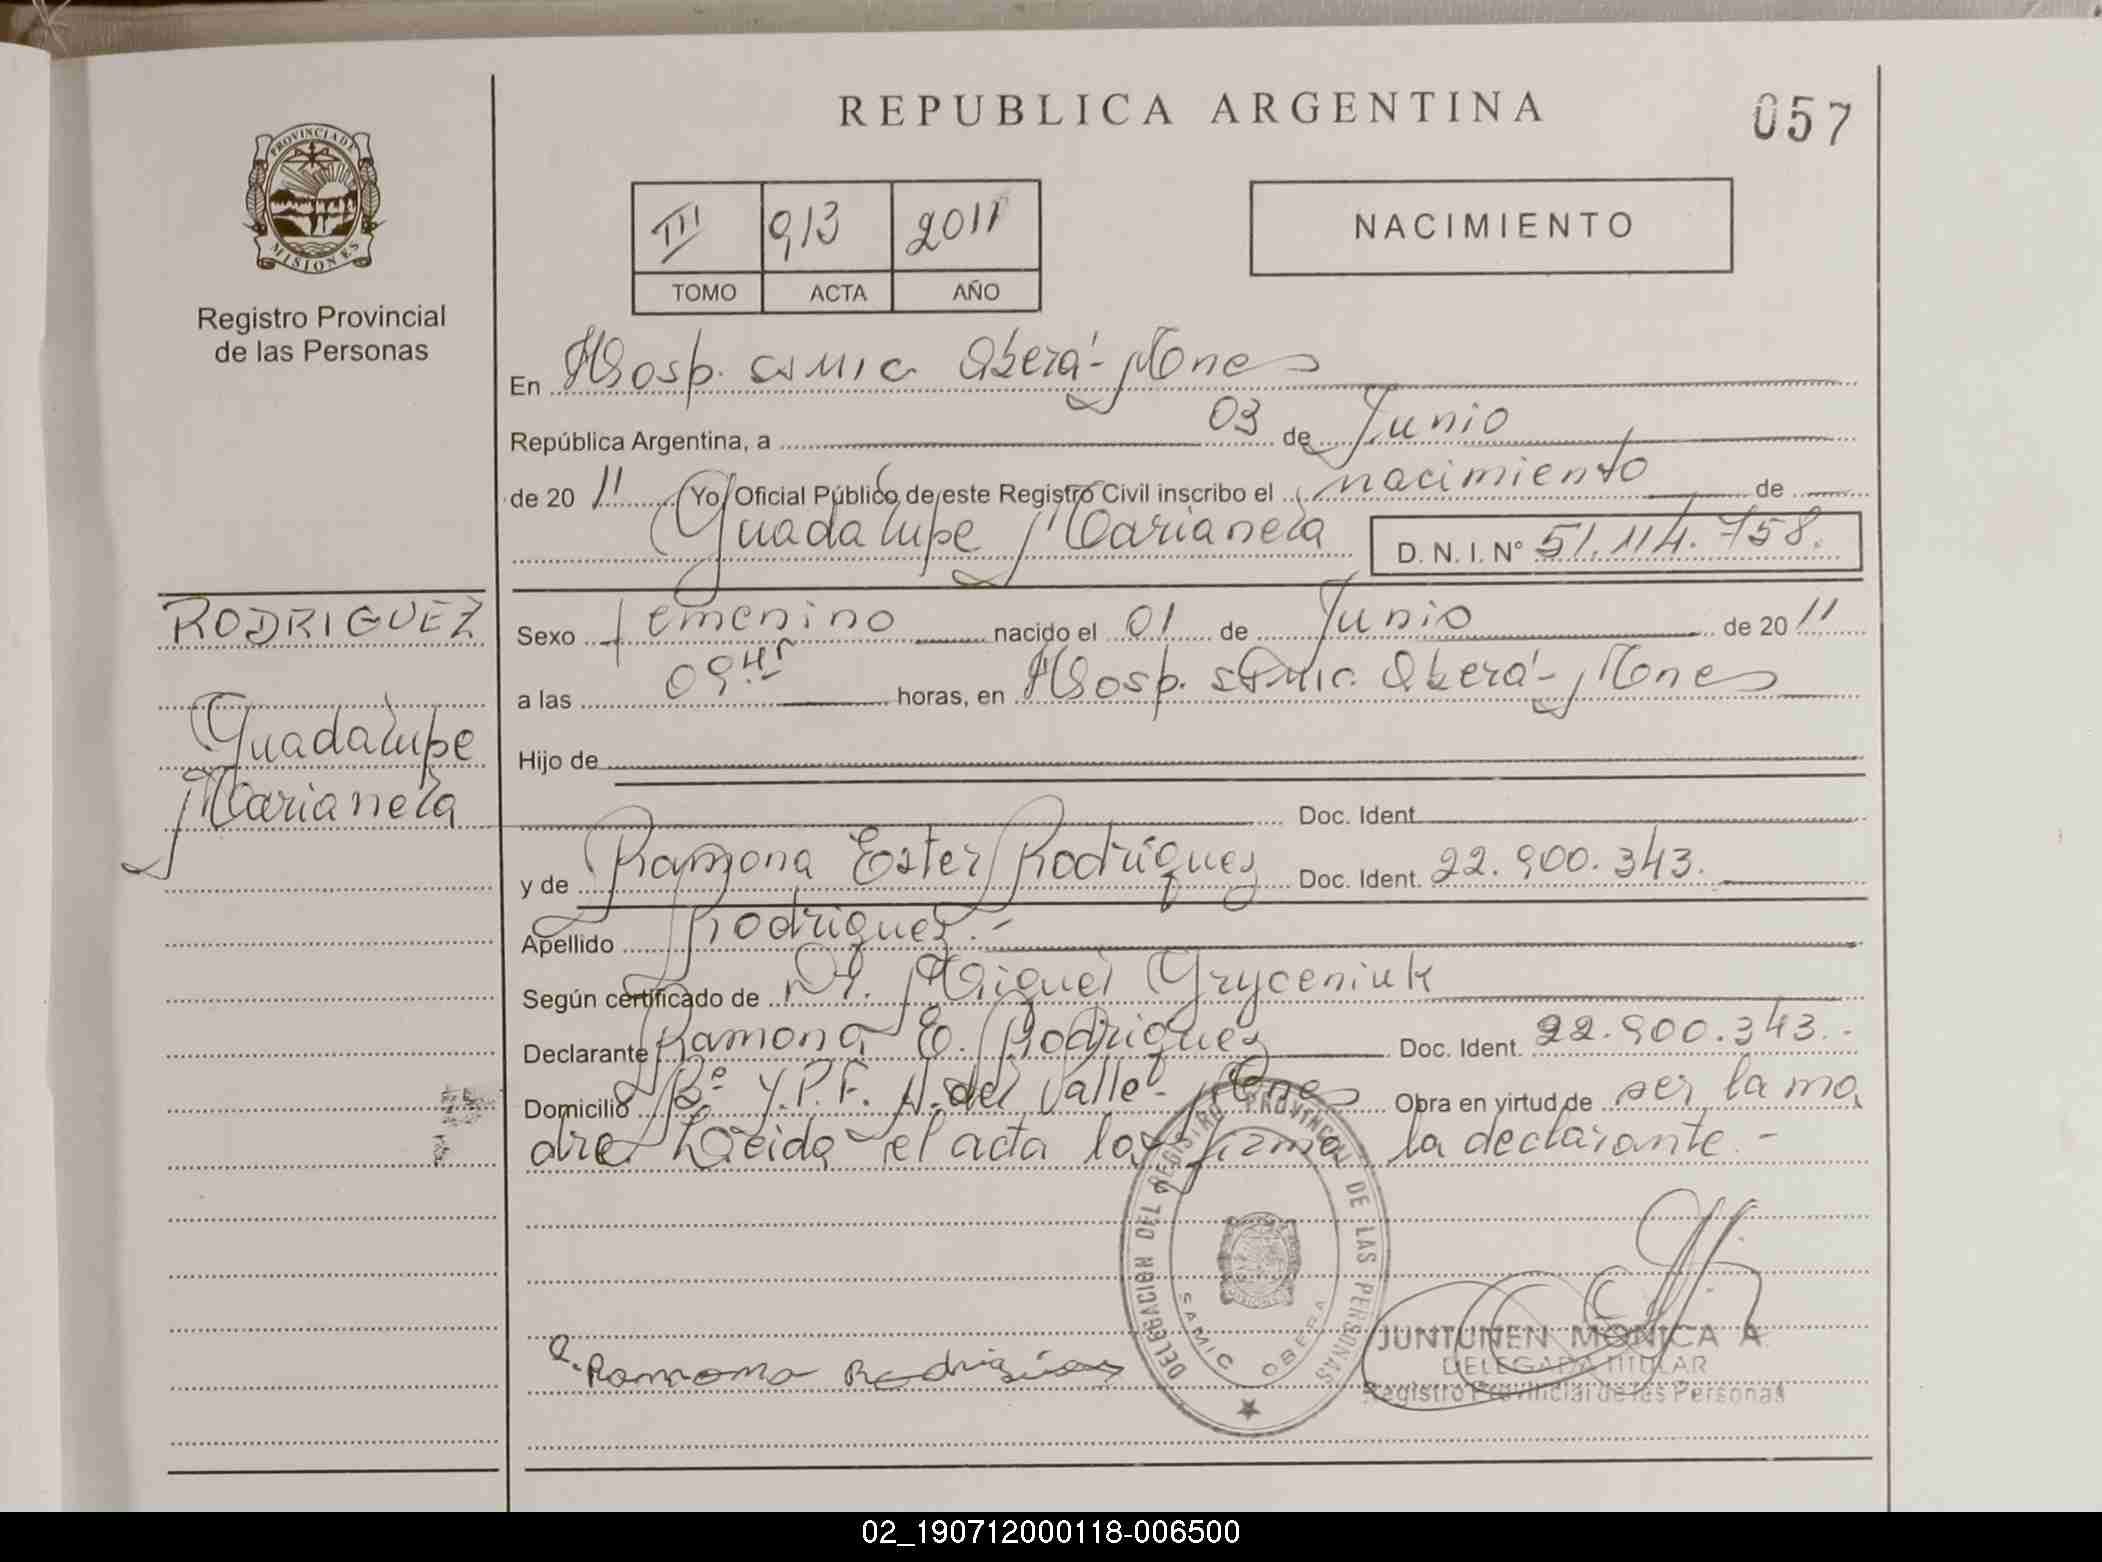 REPUBLICA ARGENTINA
057
PROVINCIA DE
MISIONES
Registro Provincial
de las Personas
III 913 2011
TOMO ACTA AÑO
NACIMIENTO
En Hosp. SAMIC Oberá - Mnes
República Argentina, a 03 de Junio
de 20 11 Yo Oficial Público de este Registro Civil inscribo el nacimiento de
Guadalupe Marianela D. N. I. N° 51.114.758.
RODRIGUEZ
Guadalupe
Marianela
Sexo femenino nacido el 01 de Junio de 20 11
a las 09.45 horas, en Hosp. SAMIC. Oberá - Mnes
Hijo de
Doc. Ident.
y de Ramona Ester Rodríguez Doc. Ident. 22.900.343.
Apellido Rodríguez.-
Según certificado de Dr. Miguel Gryceniuk
Declarante Ramona E. Rodríguez Doc. Ident. 22.900.343.-
Domicilio Bº Y.P.F. A. del Valle - Mnes Obra en virtud de ser la ma
dre. Leida el acta la firma la declarante.-
DELEGACION DEL REGISTRO PROVINCIAL DE LAS PERSONAS
SAMIC OBERA
Ramona Rodriguez
JUNTUNEN MONICA A.
DELEGADA TITULAR
Registro Provincial de las Personas
02_190712000118-006500